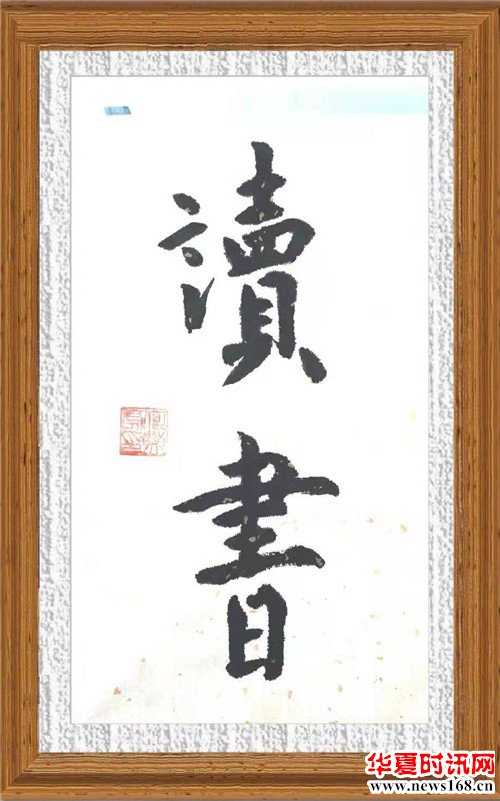 讀
書
华夏时讯网
www.news168.cn